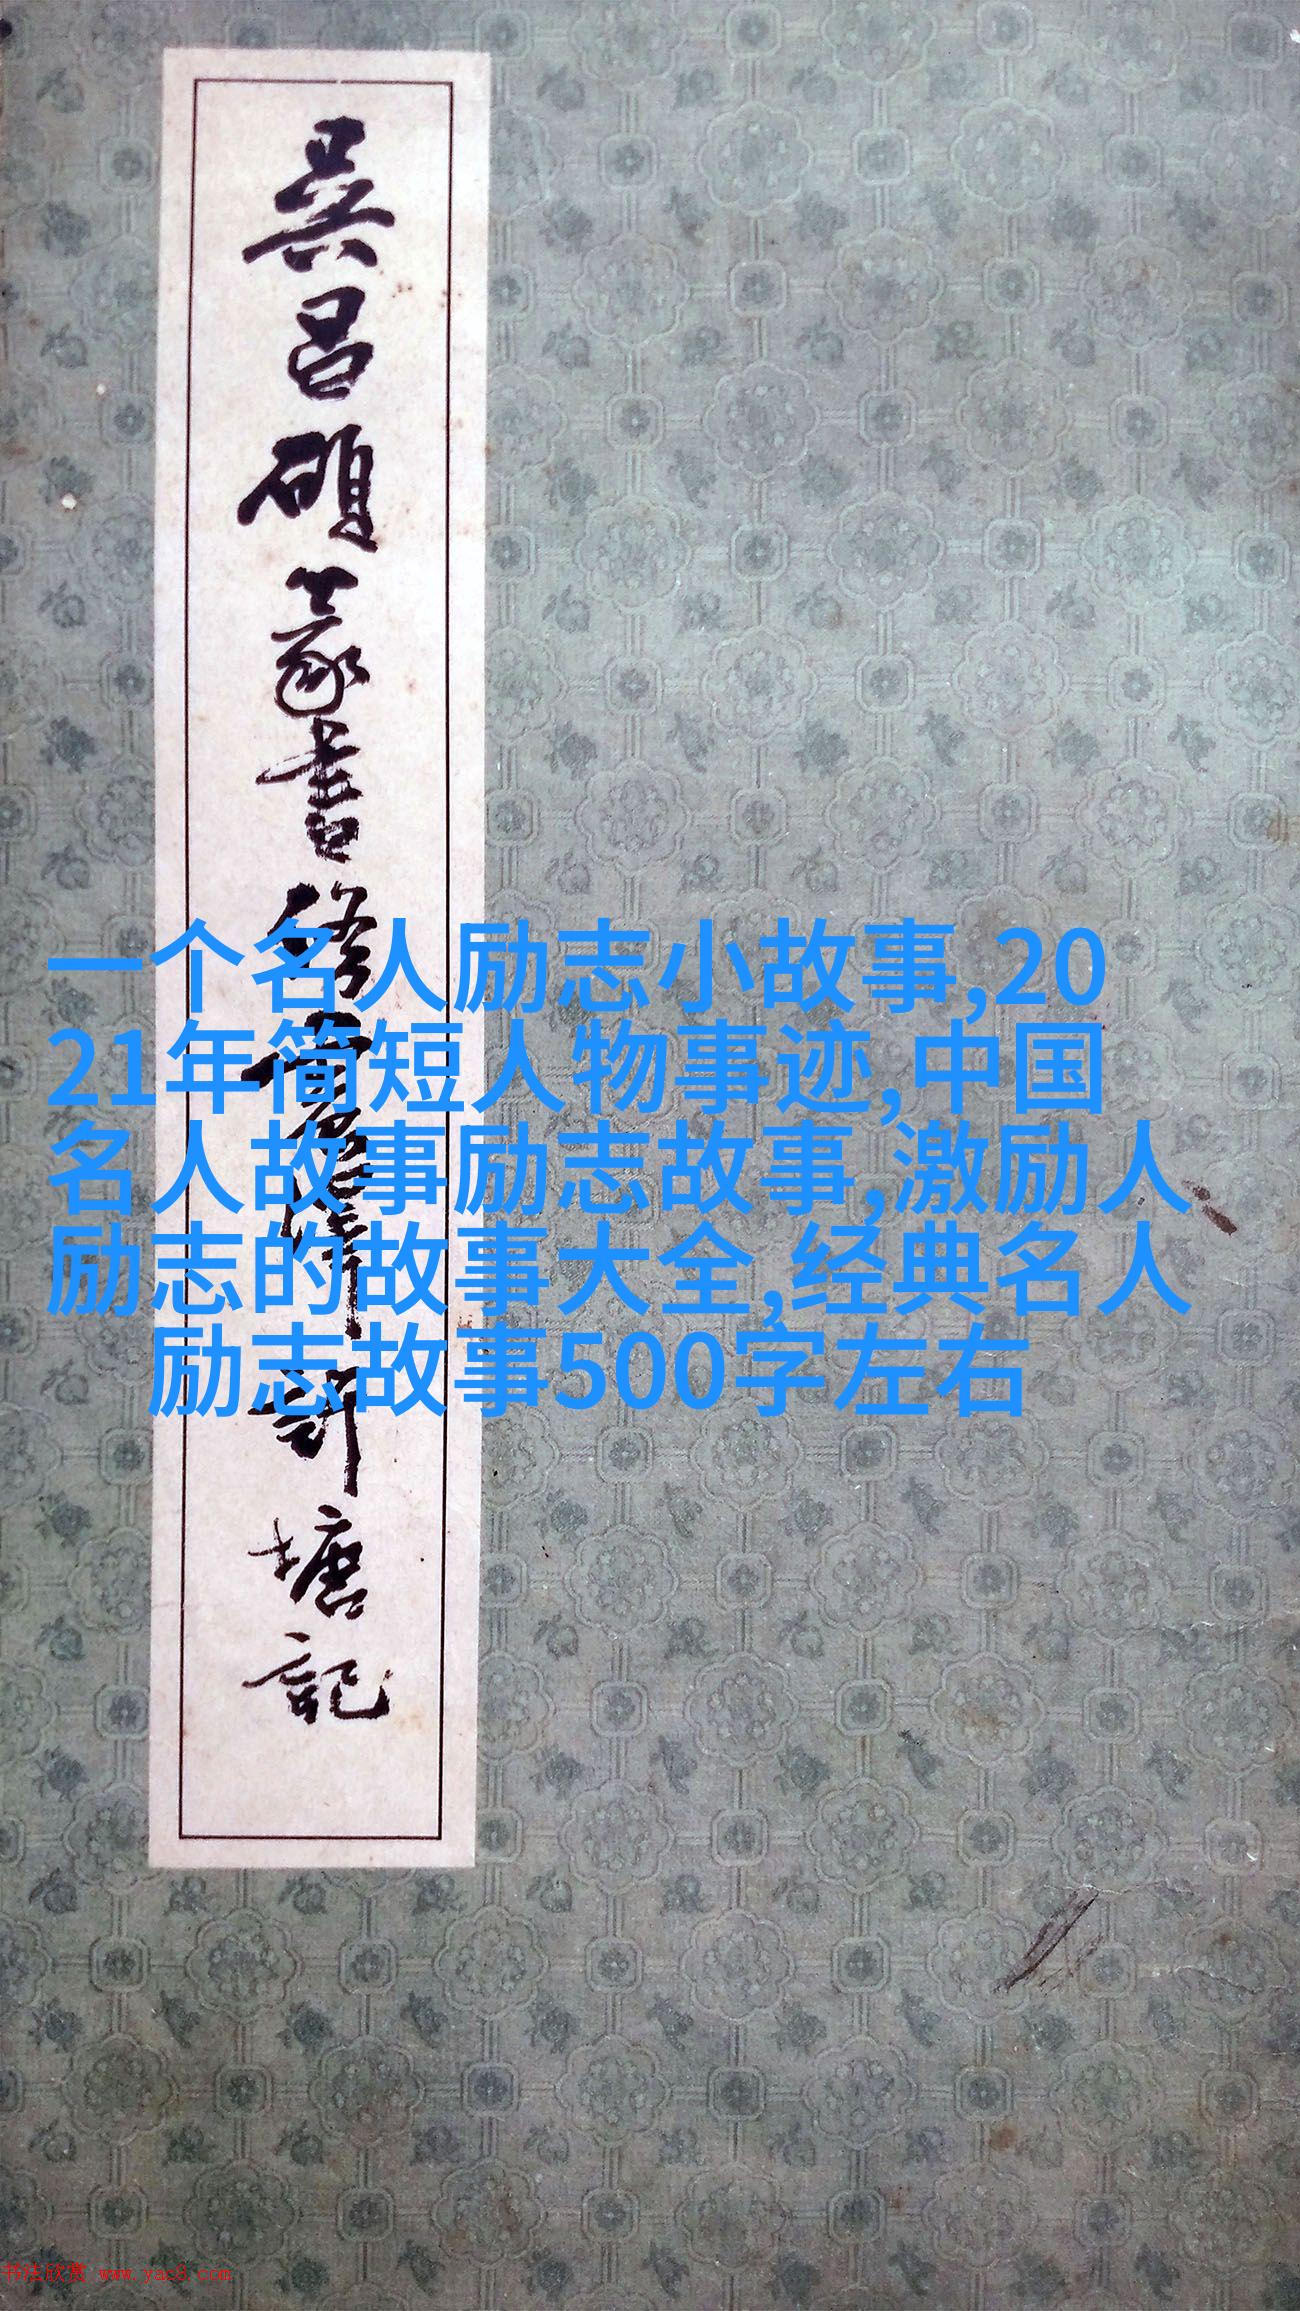 吴昌碩篆書修震澤許塘記
一个名人励志小故事,20
21年简短人物事迹,中国
名人故事励志故事,激励人
励志的故事大全,经典名人
励志故事500字左右
书法欣赏 www.yac8.com